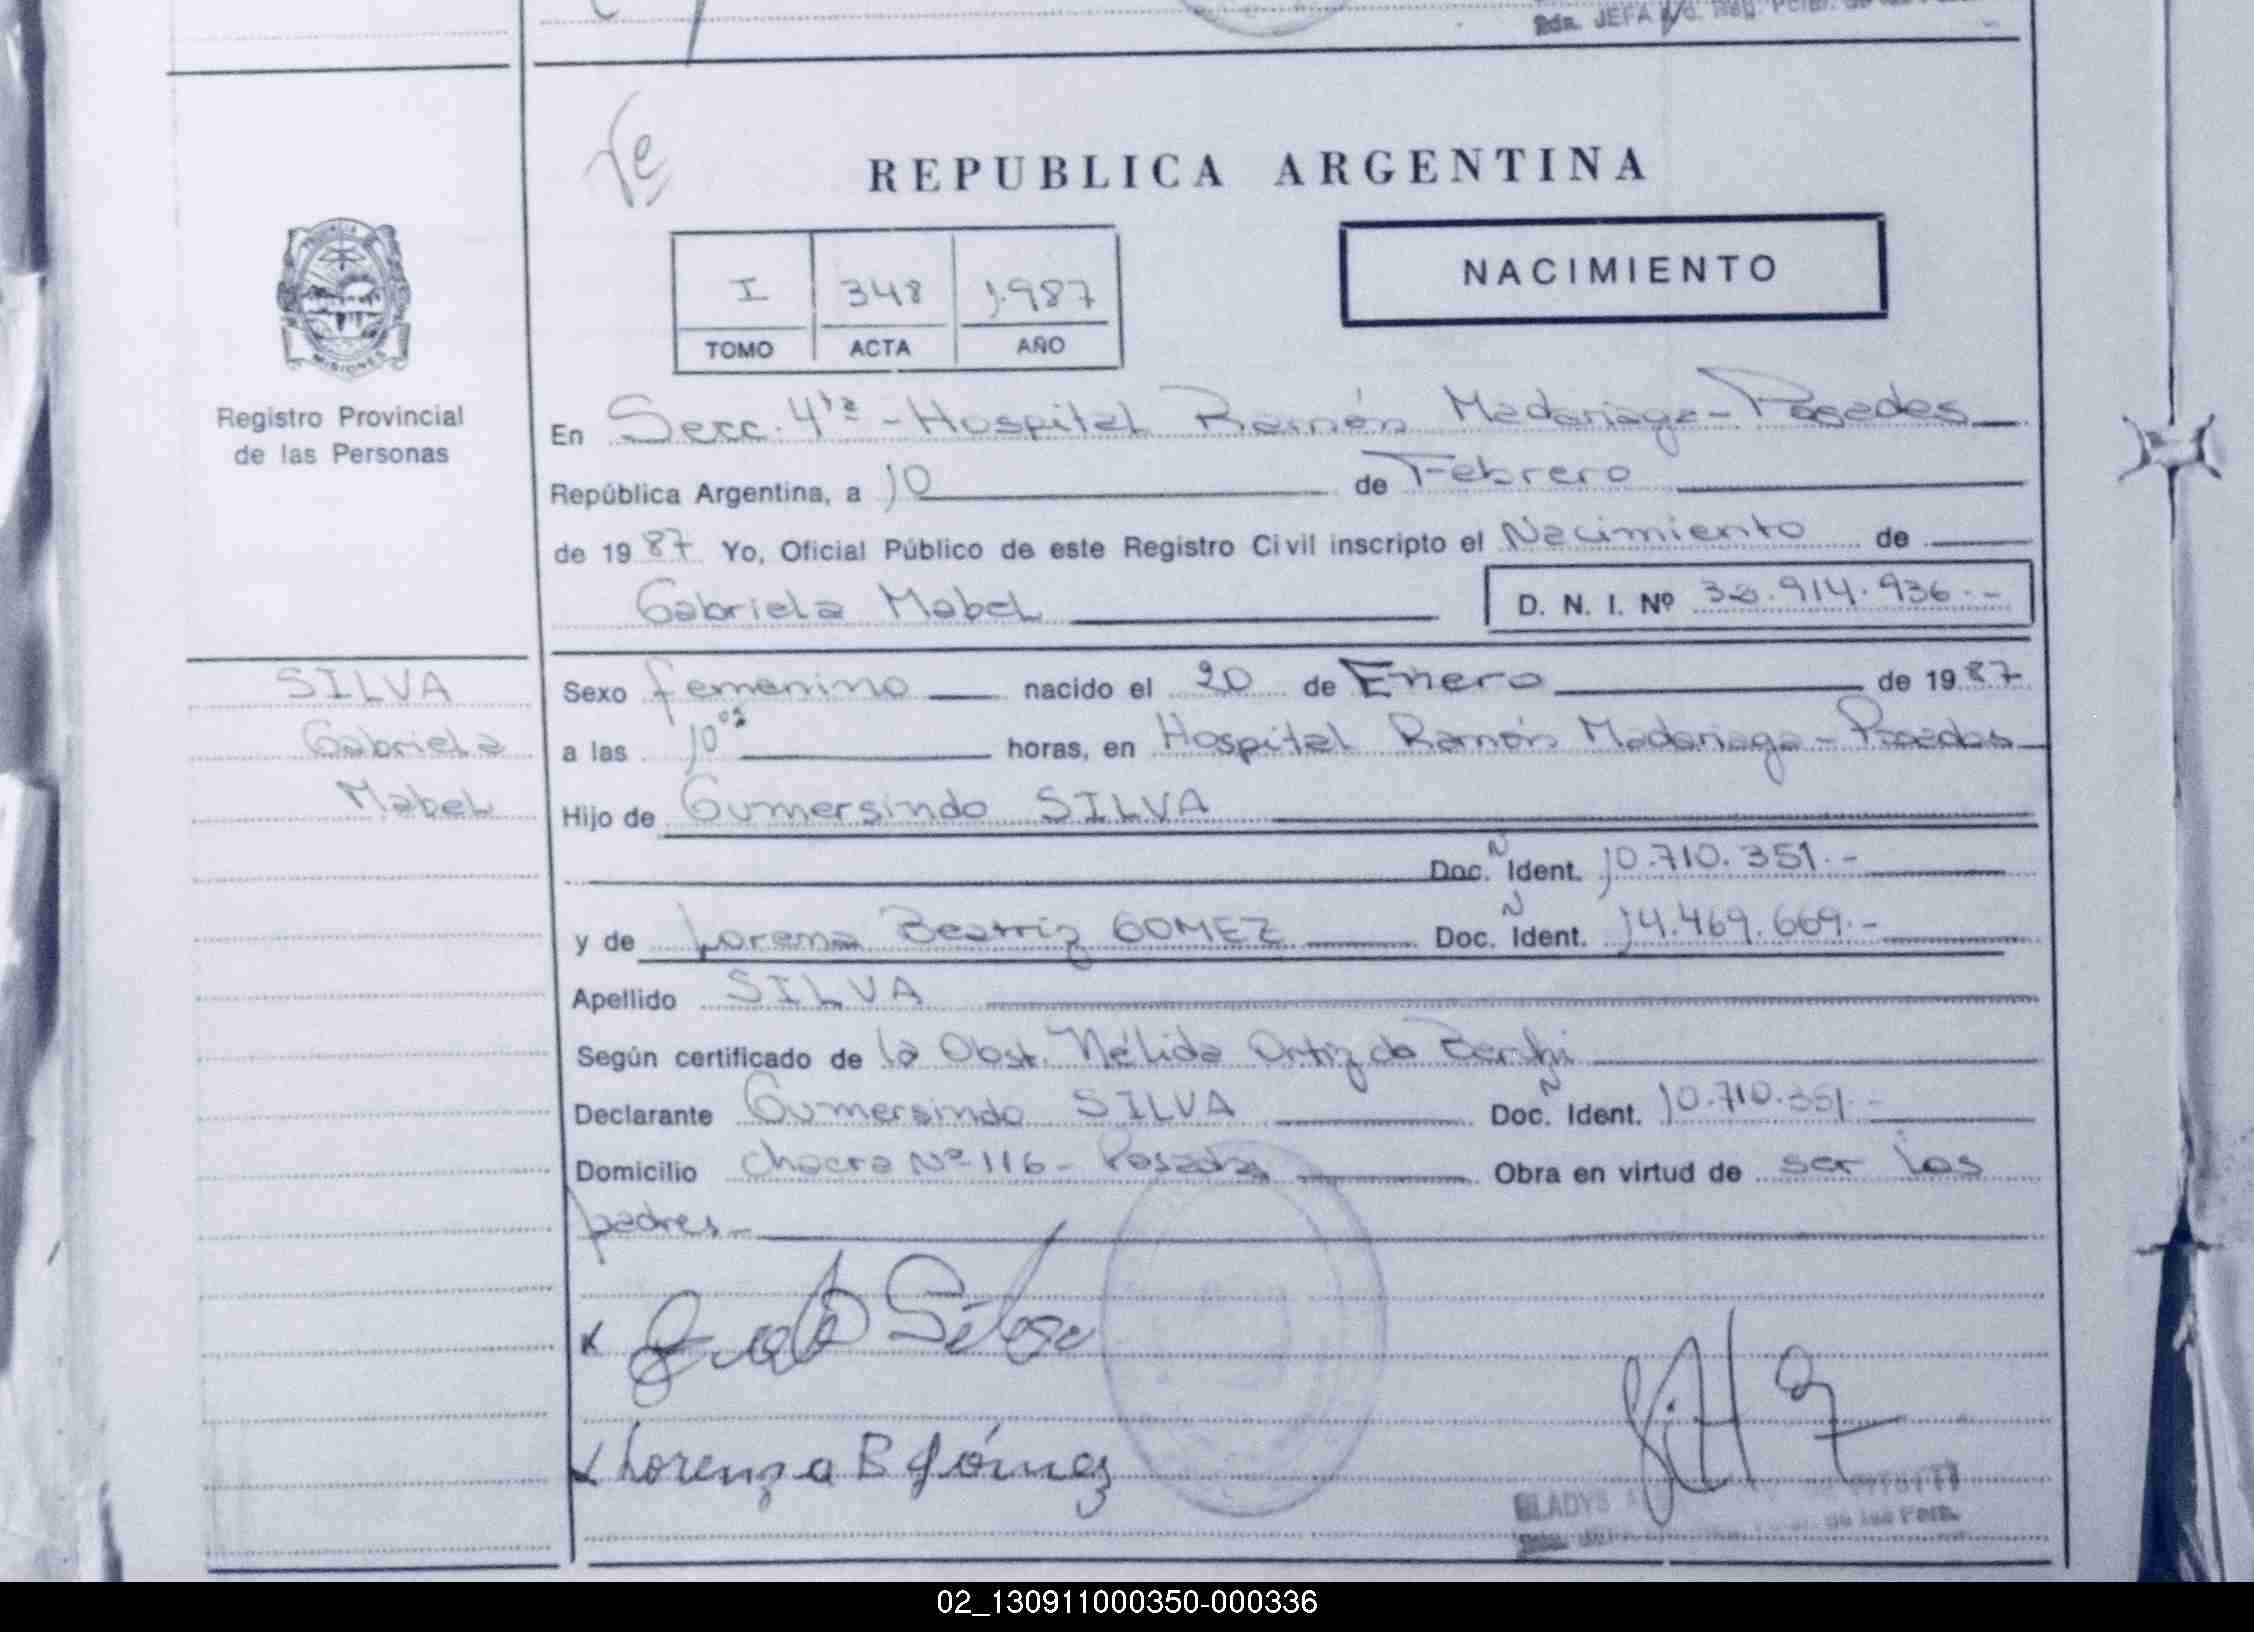 Sda. JEFA
Te
REPUBLICA ARGENTINA
I 348 1.987
TOMO ACTA AÑO
NACIMIENTO
PROVINCIA DE
MISIONES
Registro Provincial
de las Personas
En Secc. 4ta - Hospital Ramón Madariaga - Posadas
República Argentina, a 10 de Febrero
de 1987 Yo, Oficial Público de este Registro Civil inscripto el Nacimiento de
Gabriela Mabel D. N. I. Nº .914.936.-
SILVA
Gabriela
Mabel
Sexo femenino nacido el 20 de Enero de 1987
a las 10 horas, en Hospital Ramón Madariaga - Posadas
Hijo de Gumersindo SILVA
Doc. N Ident. 10.710.351.-
y de Beatriz GOMEZ Doc. N Ident. 14.469.669.-
Apellido SILVA
Según certificado de la Obst. Nélida Ortiz de
Declarante Gumersindo SILVA Doc. N Ident. 10.710.351.-
Domicilio chacra Nº 116 - Posadas Obra en virtud de ser los
padres.-
x Silva
x Lorenza B Gómez
GLADYS
de las Pers.
02_130911000350-000336